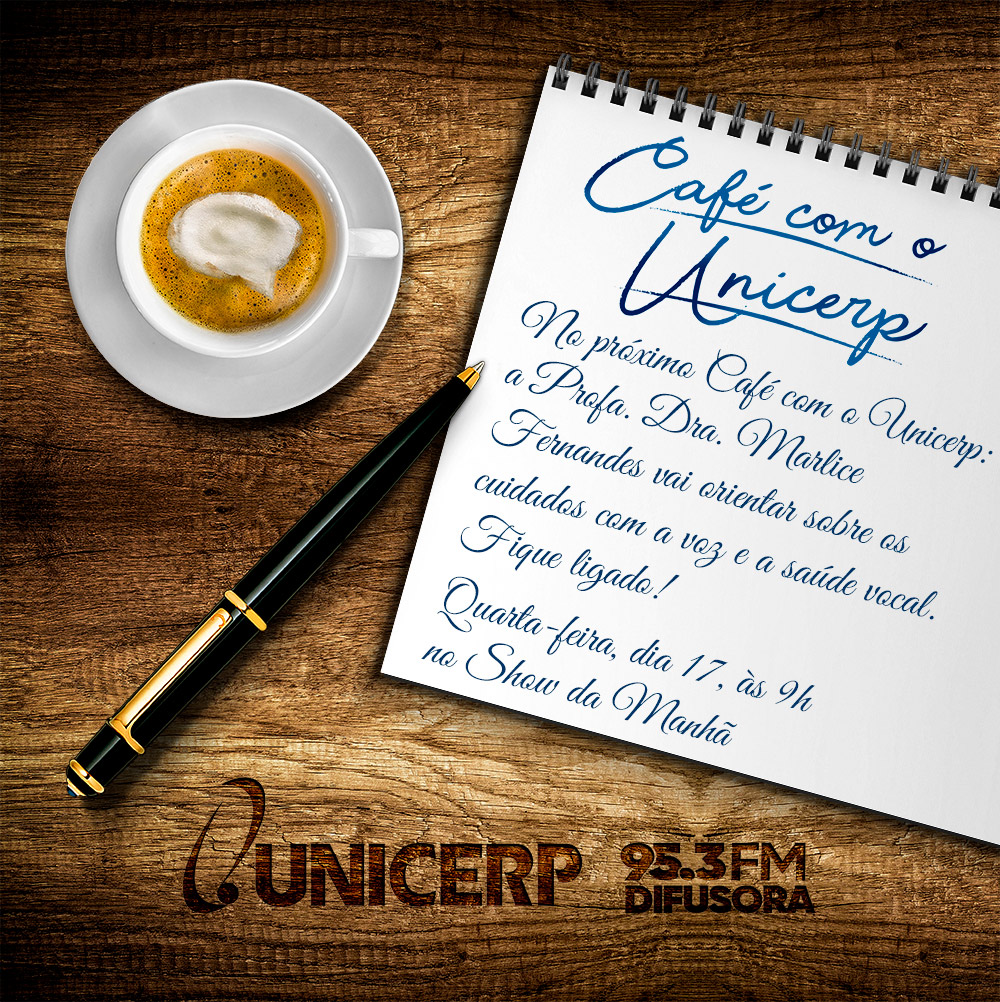 Café com o
Unicerp
No próximo Café com o Unicerp:
a Profa. Dra. Marlice
Fernandes vai orientar sobre os
cuidados com a voz e a saúde vocal.
Fique ligado!
Quarta-feira, dia 17, às 9h
no Show da Manhã
UNICERP
95.3 FM
DIFUSORA